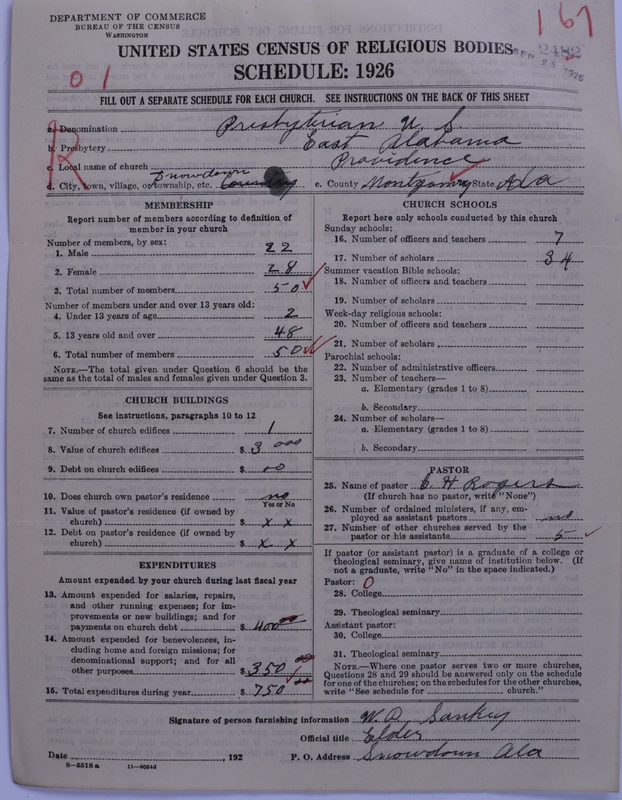 DEPARTMENT OF COMMERCE
BUREAU OF THE CENSUS
WASHINGTON
167
2482
SEP 25 1926
UNITED STATES CENSUS OF RELIGIOUS BODIES
SCHEDULE: 1926
01
FILL OUT A SEPARATE SCHEDULE FOR EACH CHURCH. SEE INSTRUCTIONS ON THE BACK OF THIS SHEET
R
a. Denomination Presbyterian U. S
b. Presbytery East Alabama
c. Local name of church Providence
d. City, town, village, or township, etc. Snowdoun Country e. County Montgomry State Ala
MEMBERSHIP
Report number of members according to definition of
member in your church
Number of members, by sex:
1. Male 22
2. Female 28
3. Total number of members 50
Number of members under and over 13 years old:
4. Under 13 years of age 2
5. 13 years old and over 48
6. Total number of members 50
NOTE.—The total given under Question 6 should be
same as the total of males and females given under Question 3.
CHURCH BUILDINGS
See instructions, paragraphs 10 to 12
7. Number of church edifices 1
8. Value of church edifices $ 3 000
9. Debt on church edifices $ 00
10. Does church own pastor's residence no
Yes or No
11. Value of pastor's residence (if owned by
church) $ x x
12. Debt on pastor's residence (if owned by
church) $ x x
EXPENDITURES
Amount expended by your church during last fiscal year
13. Amount expended for salaries, repairs,
and other running expenses; for im-
provements or new buildings; and for
payments on church debt $ 400 00
14. Amount expended for benevolences, in-
cluding home and foreign missions; for
denominational support; and for all
other purposes $ 350 00
15. Total expenditures during year $ 750 00
CHURCH SCHOOLS
Report here only schools conducted by this church
Sunday schools:
16. Number of officers and teachers 7
17. Number of scholars 34
Summer vacation Bible schools:
18. Number of officers and teachers
19. Number of scholars
Week-day religious schools:
20. Number of officers and teachers
21. Number of scholars
Parochial schools:
22. Number of administrative officers
23. Number of teachers—
a. Elementary (grades 1 to 8)
b. Secondary
24. Number of scholars—
a. Elementary (grades 1 to 8)
b. Secondary
PASTOR
25. Name of pastor C H Rogers
(If church has no pastor, write "None")
26. Number of ordained ministers, if any, em-
ployed as assistant pastors no
27. Number of other churches served by the
pastor or his assistants 5
If pastor (or assistant pastor) is a graduate of a college or
theological seminary, give name of institution below. (If
not a graduate, write "No" in the space indicated.)
Pastor: 0
28. College
29. Theological seminary
Assistant pastor:
30. College
31. Theological seminary
NOTE.—Where one pastor serves two or more churches,
Questions 28 and 29 should be answered only on the schedule
for one of the churches; on the schedules for the other churches,
write "See schedule for church."
Signature of person furnishing information W. D. Sankey
Official title Elder
Date , 192 P. O. Address Snowdoun Ala